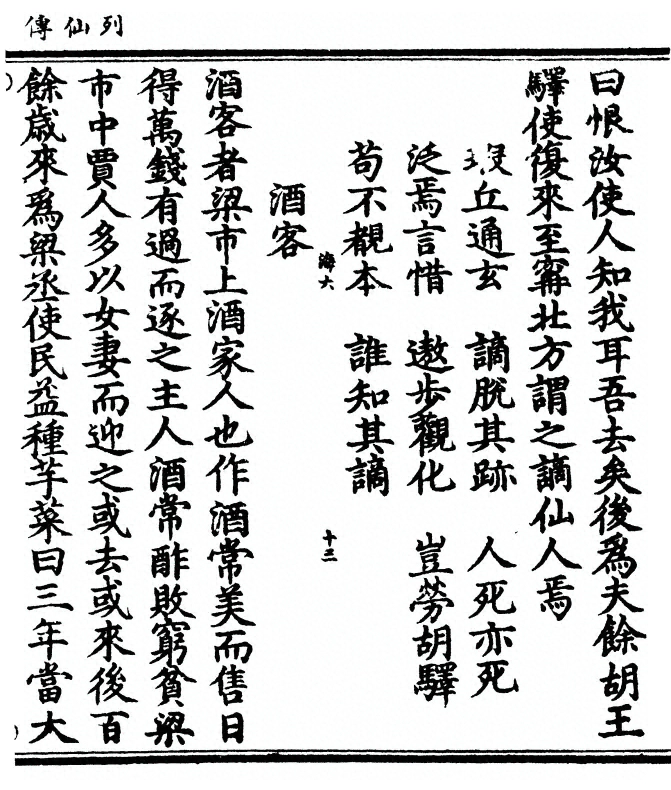 列仙傳
曰恨汝使人知我耳吾去矣後爲夫餘胡王
驛使復來至甯北方謂之謫仙人焉
瑕丘通玄　謫脫其跡　人死亦死
泛焉言惜　遨步觀化　豈勞胡驛
苟不覩本　誰知其謫
海六　十三
酒客
酒客者梁市上酒家人也作酒常美而售日
得萬錢有過而逐之主人酒常酢敗窮貧梁
市中賈人多以女妻而迎之或去或來後百
餘歲來爲梁丞使民益種芋菜曰三年當大